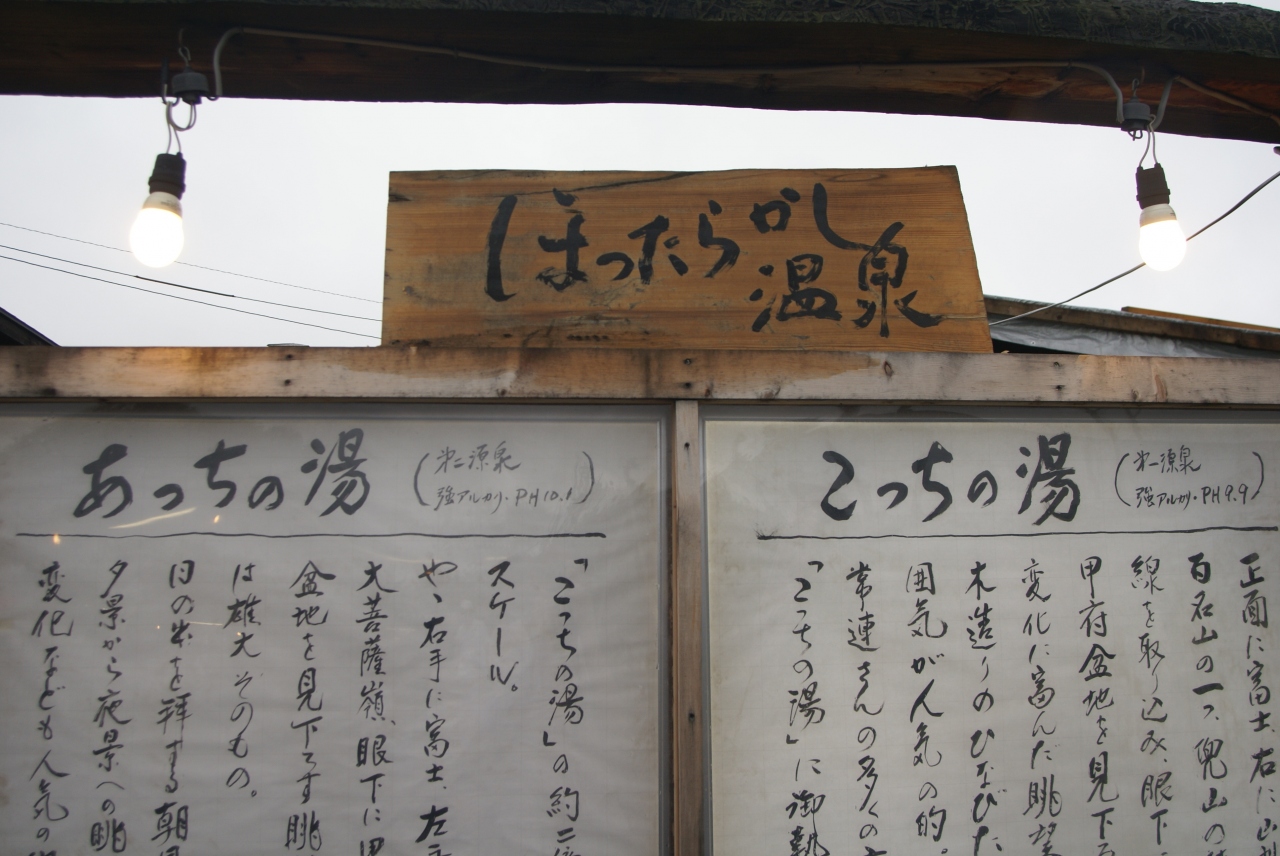 ほったらかし
温泉
あっちの湯
(第二源泉
強アルカリ・PH10.1)
「こっちの湯」の約二
スケール。
やゝ右手に富士、左
大菩薩嶺、眼下に甲
盆地を見下ろす眺
は雄大そのもの。
日の出を拝する朝
夕景から夜景への眺
変化なども人気の
こっちの湯
(第一源泉
強アルカリ・PH9.9)
正面に富士、右に山
百名山の一つ、兜山の
線を取り込み、眼下
甲府盆地を見下ろ
変化に富んだ眺望
木造りのひなびた
囲気が人気の的。
常連さんの多くの
「こっちの湯」に御執